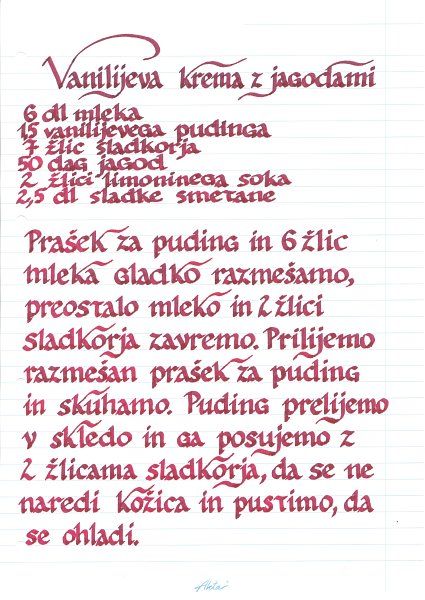 Vanilijeva krema z jagodami
6 dl mleka
15 vanilijevega pudinga
7 žlic sladkorja
50 dag jagod
2 žlici limoninega soka
2,5 dl sladke smetane
Prašek za puding in 6 žlic
mleka gladko razmešamo,
preostalo mleko in 2 žlici
sladkorja zavremo. Prilijemo
razmešan prašek za puding
in skuhamo. Puding prelijemo
v skledo in ga posujemo z
2 žlicama sladkorja, da se ne
naredi kožica in pustimo, da
se ohladi.